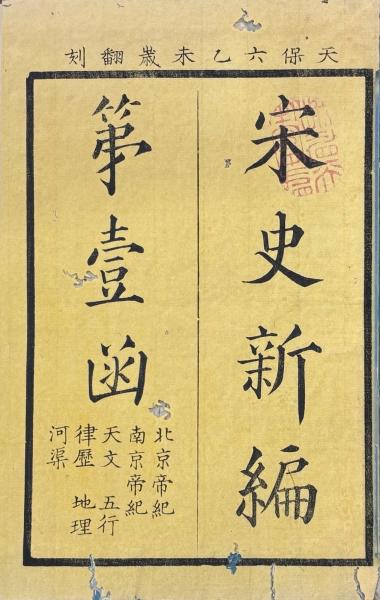 天保六乙未歲翻刻
宋史新編
第壹函
北京帝紀
南京帝紀
天文 五行
律歷 地理
河渠